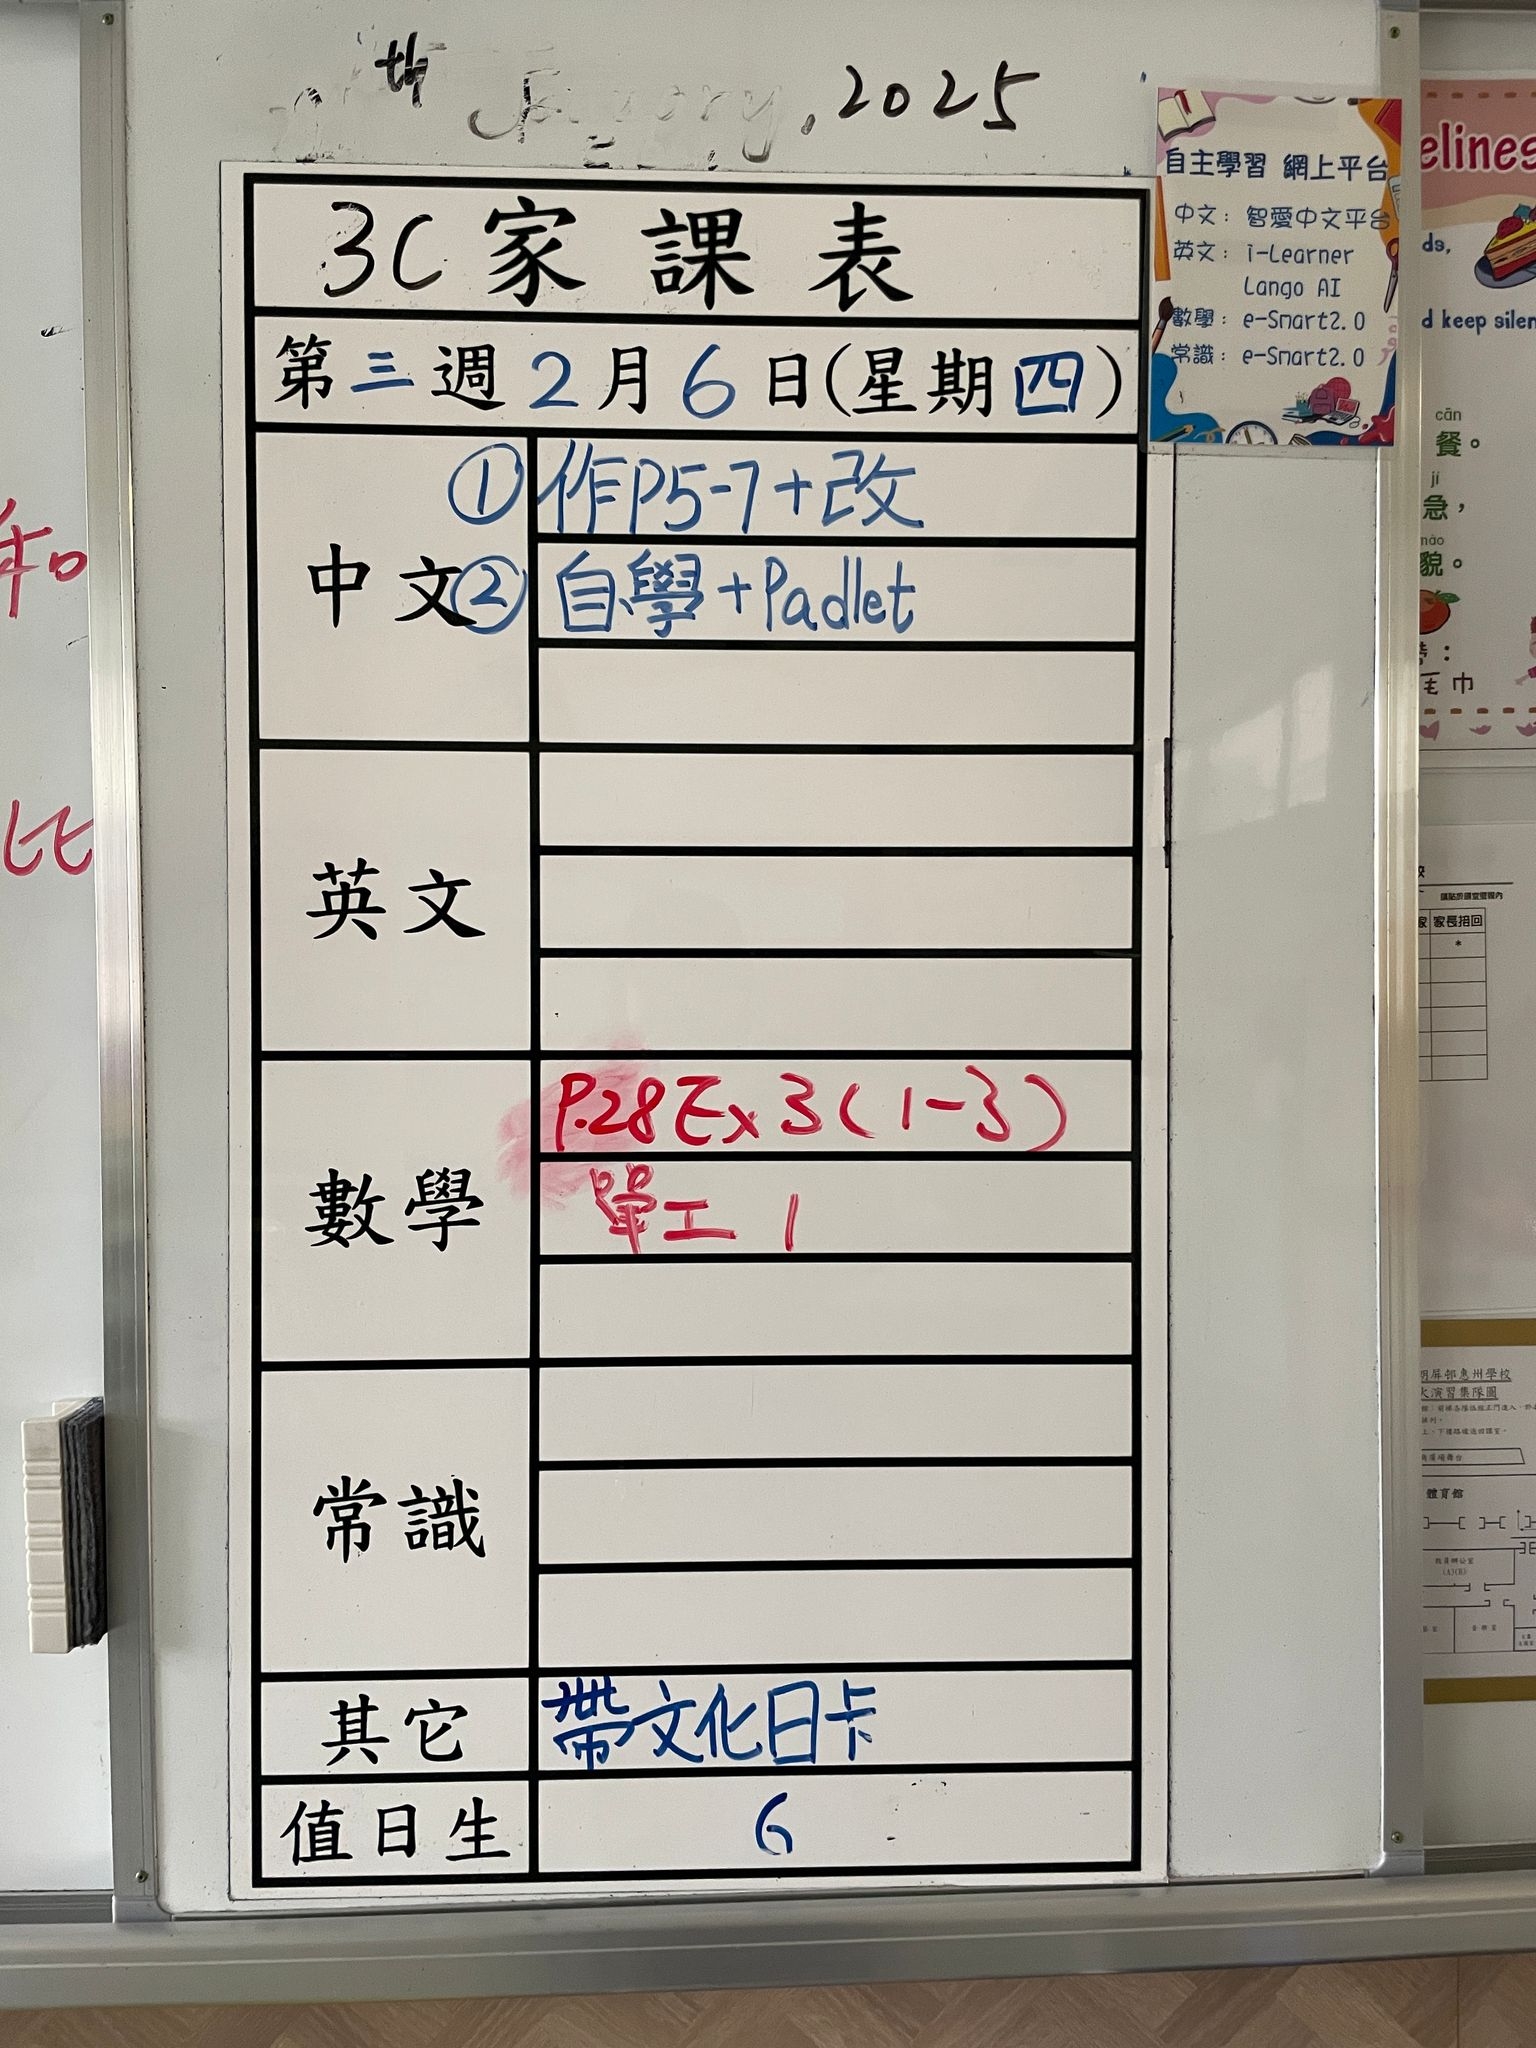 th January, 2025
3C 家課表
第三週 2月6日(星期四)
中文
① 作P5-7+改
② 自學+Padlet
英文
數學
P.28 Ex 3 (1-3)
單工 1
常識
其它
帶文化日卡
值日生
6
自主學習 網上平台
中文：智愛中文平台
英文：i-Learner
Lango AI
數學：e-Smart2.0
常識：e-Smart2.0
和
比
elines
ds,
d keep silen
cān
餐。
jí
急，
mào
貌。
毛巾
家長接回
*
火演習集隊圖
體育館